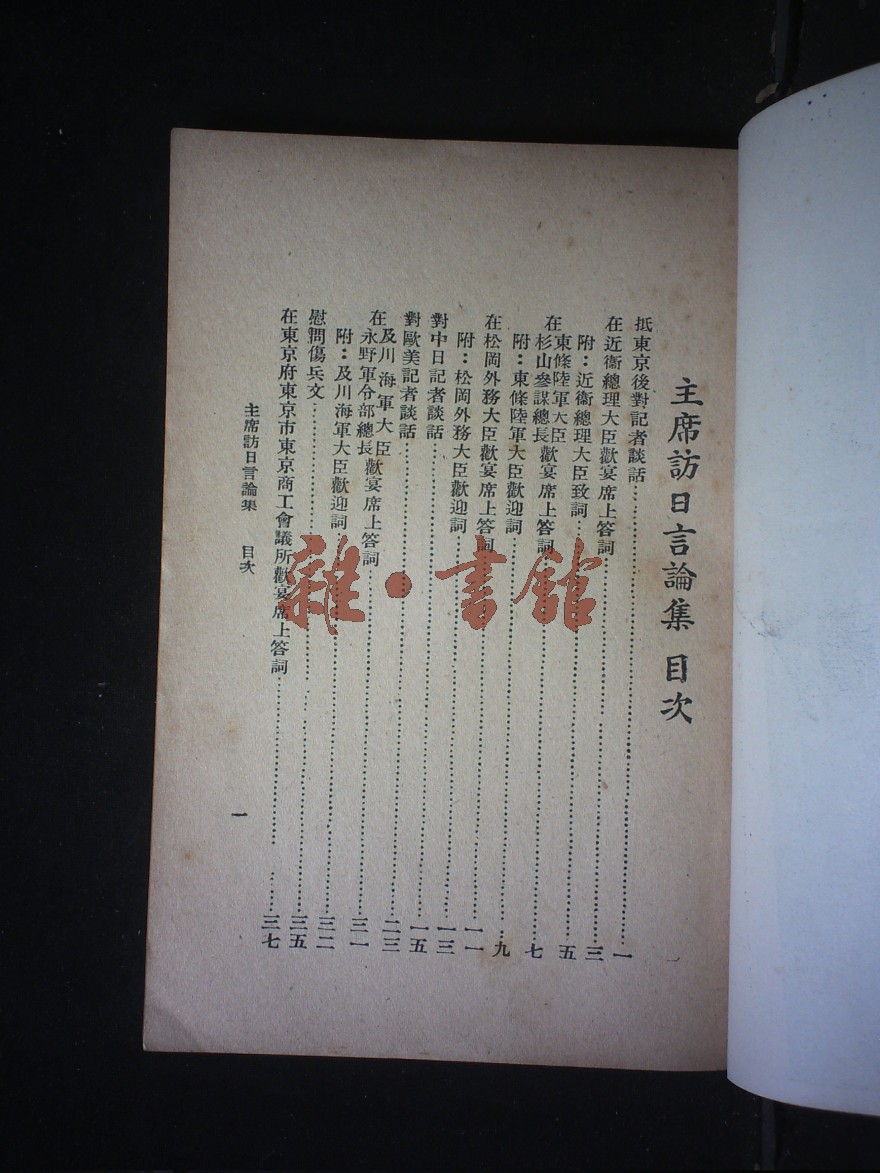 主席訪日言論集 目次
抵東京後對記者談話……一
在近衞總理大臣歡宴席上答詞……三
附：近衞總理大臣致詞……五
在東條陸軍大臣杉山參謀總長歡宴席上答詞……七
附：東條陸軍大臣歡迎詞……九
在松岡外務大臣歡宴席上答詞……一一
附：松岡外務大臣歡迎詞……一三
對中日記者談話……一五
對歐美記者談話……二三
在及川海軍大臣永野軍令部總長歡宴席上答詞……三一
附：及川海軍大臣歡迎詞……三二
慰問傷兵文……三五
在東京府東京市東京商工會議所歡宴席上答詞……三七
主席訪日言論集 目次
一
雜·書館